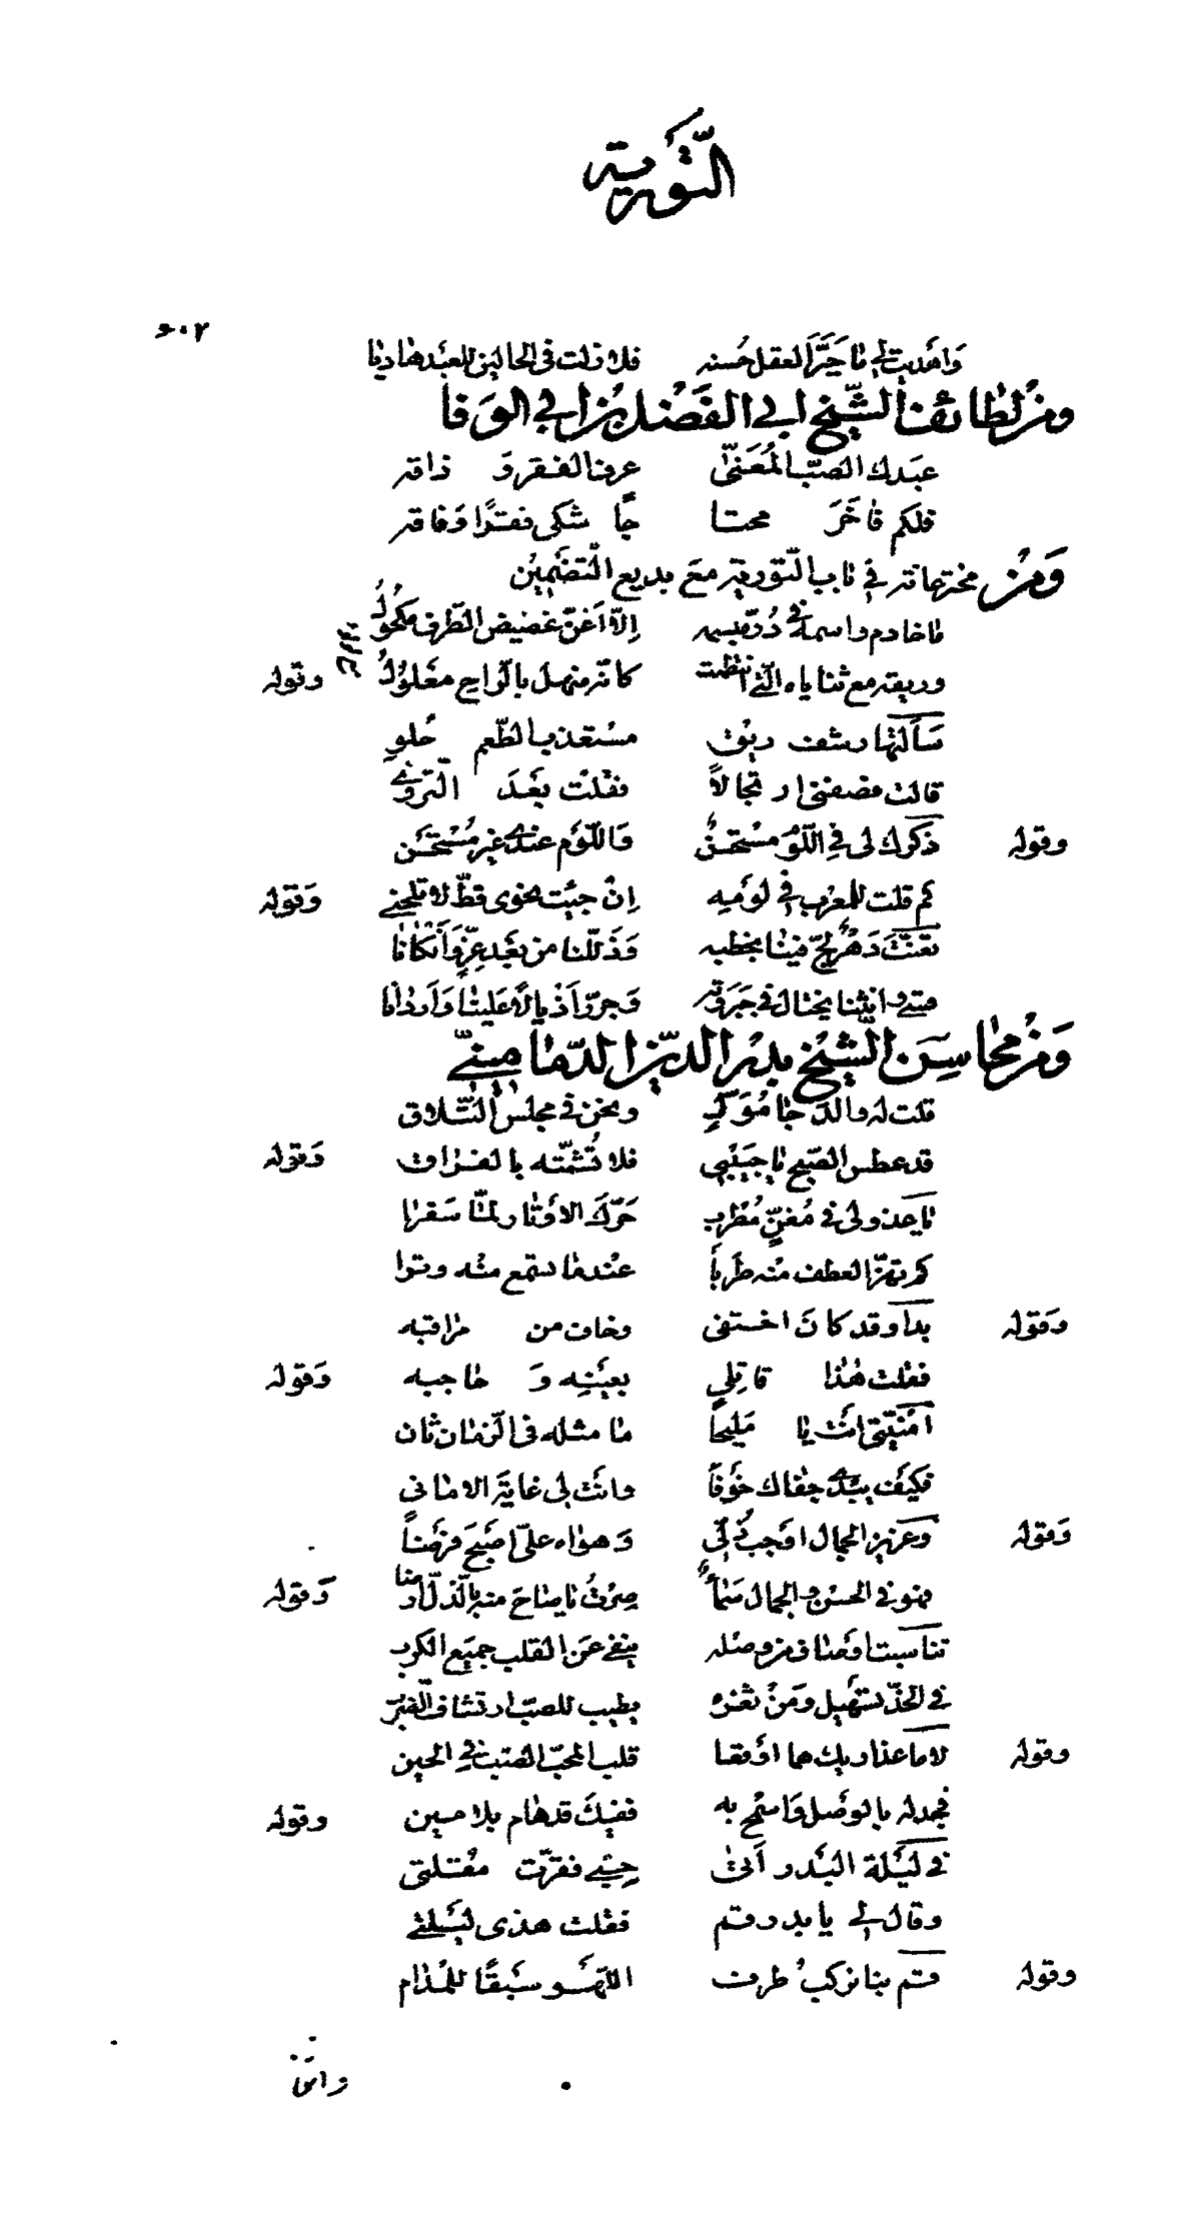 التورية
٢٠٥
وأهديت لي ما حير العقل حسنه فلا زلت في الحالين للعبد هاديا
ومن لطائف الشيخ ابي الفضل بن ابي الوفا
عبدك الصب المعنى عرف الفقر وذاقه
فلكم فاخر محتاجا شكى فقرا وفاقه
ومن مخترعاته في باب التورية مع بديع التضمين
يا خادما واسمه في در مبسمه الا اغن غضيض الطرف مكحول
وريقه مع ثناياه التي انتظمت كانه منهل بالراح معلول وقوله
سألتها رشف ريق مستعذب الطعم حلو
قالت فصفني ارتجالا فقلت بعد التروي
وقوله ذكرك لي في اللوم مستحسن واللوم عندي غير مستحسن
كم قلت للمغرب في لومه ان جئت نحوي قط لا تلحني وقوله
تعنت دهر لج فينا بخطبه وذللنا من بعد عز وأنكانا
متى وانثنا يختال في جبروته وجر أذيالا علينا وأردانا
ومن محاسن الشيخ بدر الدين الدماميني
قلت له والدجا مول ونحن في مجلس التلاق
قد عطس الصبح يا حبيبي فلا تشمته بالفراق وقوله
يا عذولي في مغن مطرب حرك الاوتار لما سفرا
كم تهز العطف منه طربا عندما تسمع منه وترا
وقوله بدا وقد كان اختفى وخاف من مراقبه
فقلت هذا قاتلي بعينه وحاجبه وقوله
امنيتي انت يا مليحا ما مثله في الزمان ثان
فكيف يبدي جفاك خوفا وانت لي غاية الاماني
وقوله وعزيز الجمال اوجب ذلي وهواه علي اصبح فرضا
فهو في الحسن والجمال سماء صرت يا صاح منه بالذل ارضا وقوله
تناسبت اوصاف من وصله ينفي عن القلب جميع الكرب
في الخد تسهيل ومن ثغره يطيب للصب ارتشاف الضرب
وقوله لاما عذاريك هما اوقعا قلب المحب الصب في الحين
فجد له بالوصل واسمح به ففيك قد هام بلا مين وقوله
في ليلة البدر أتى حبي فقرت مقلتي
وقال لي يا بدر قم فقلت هذي ليلتي
وقوله قم بنا نركب طرف اللهو سبقا للمدام
واثن